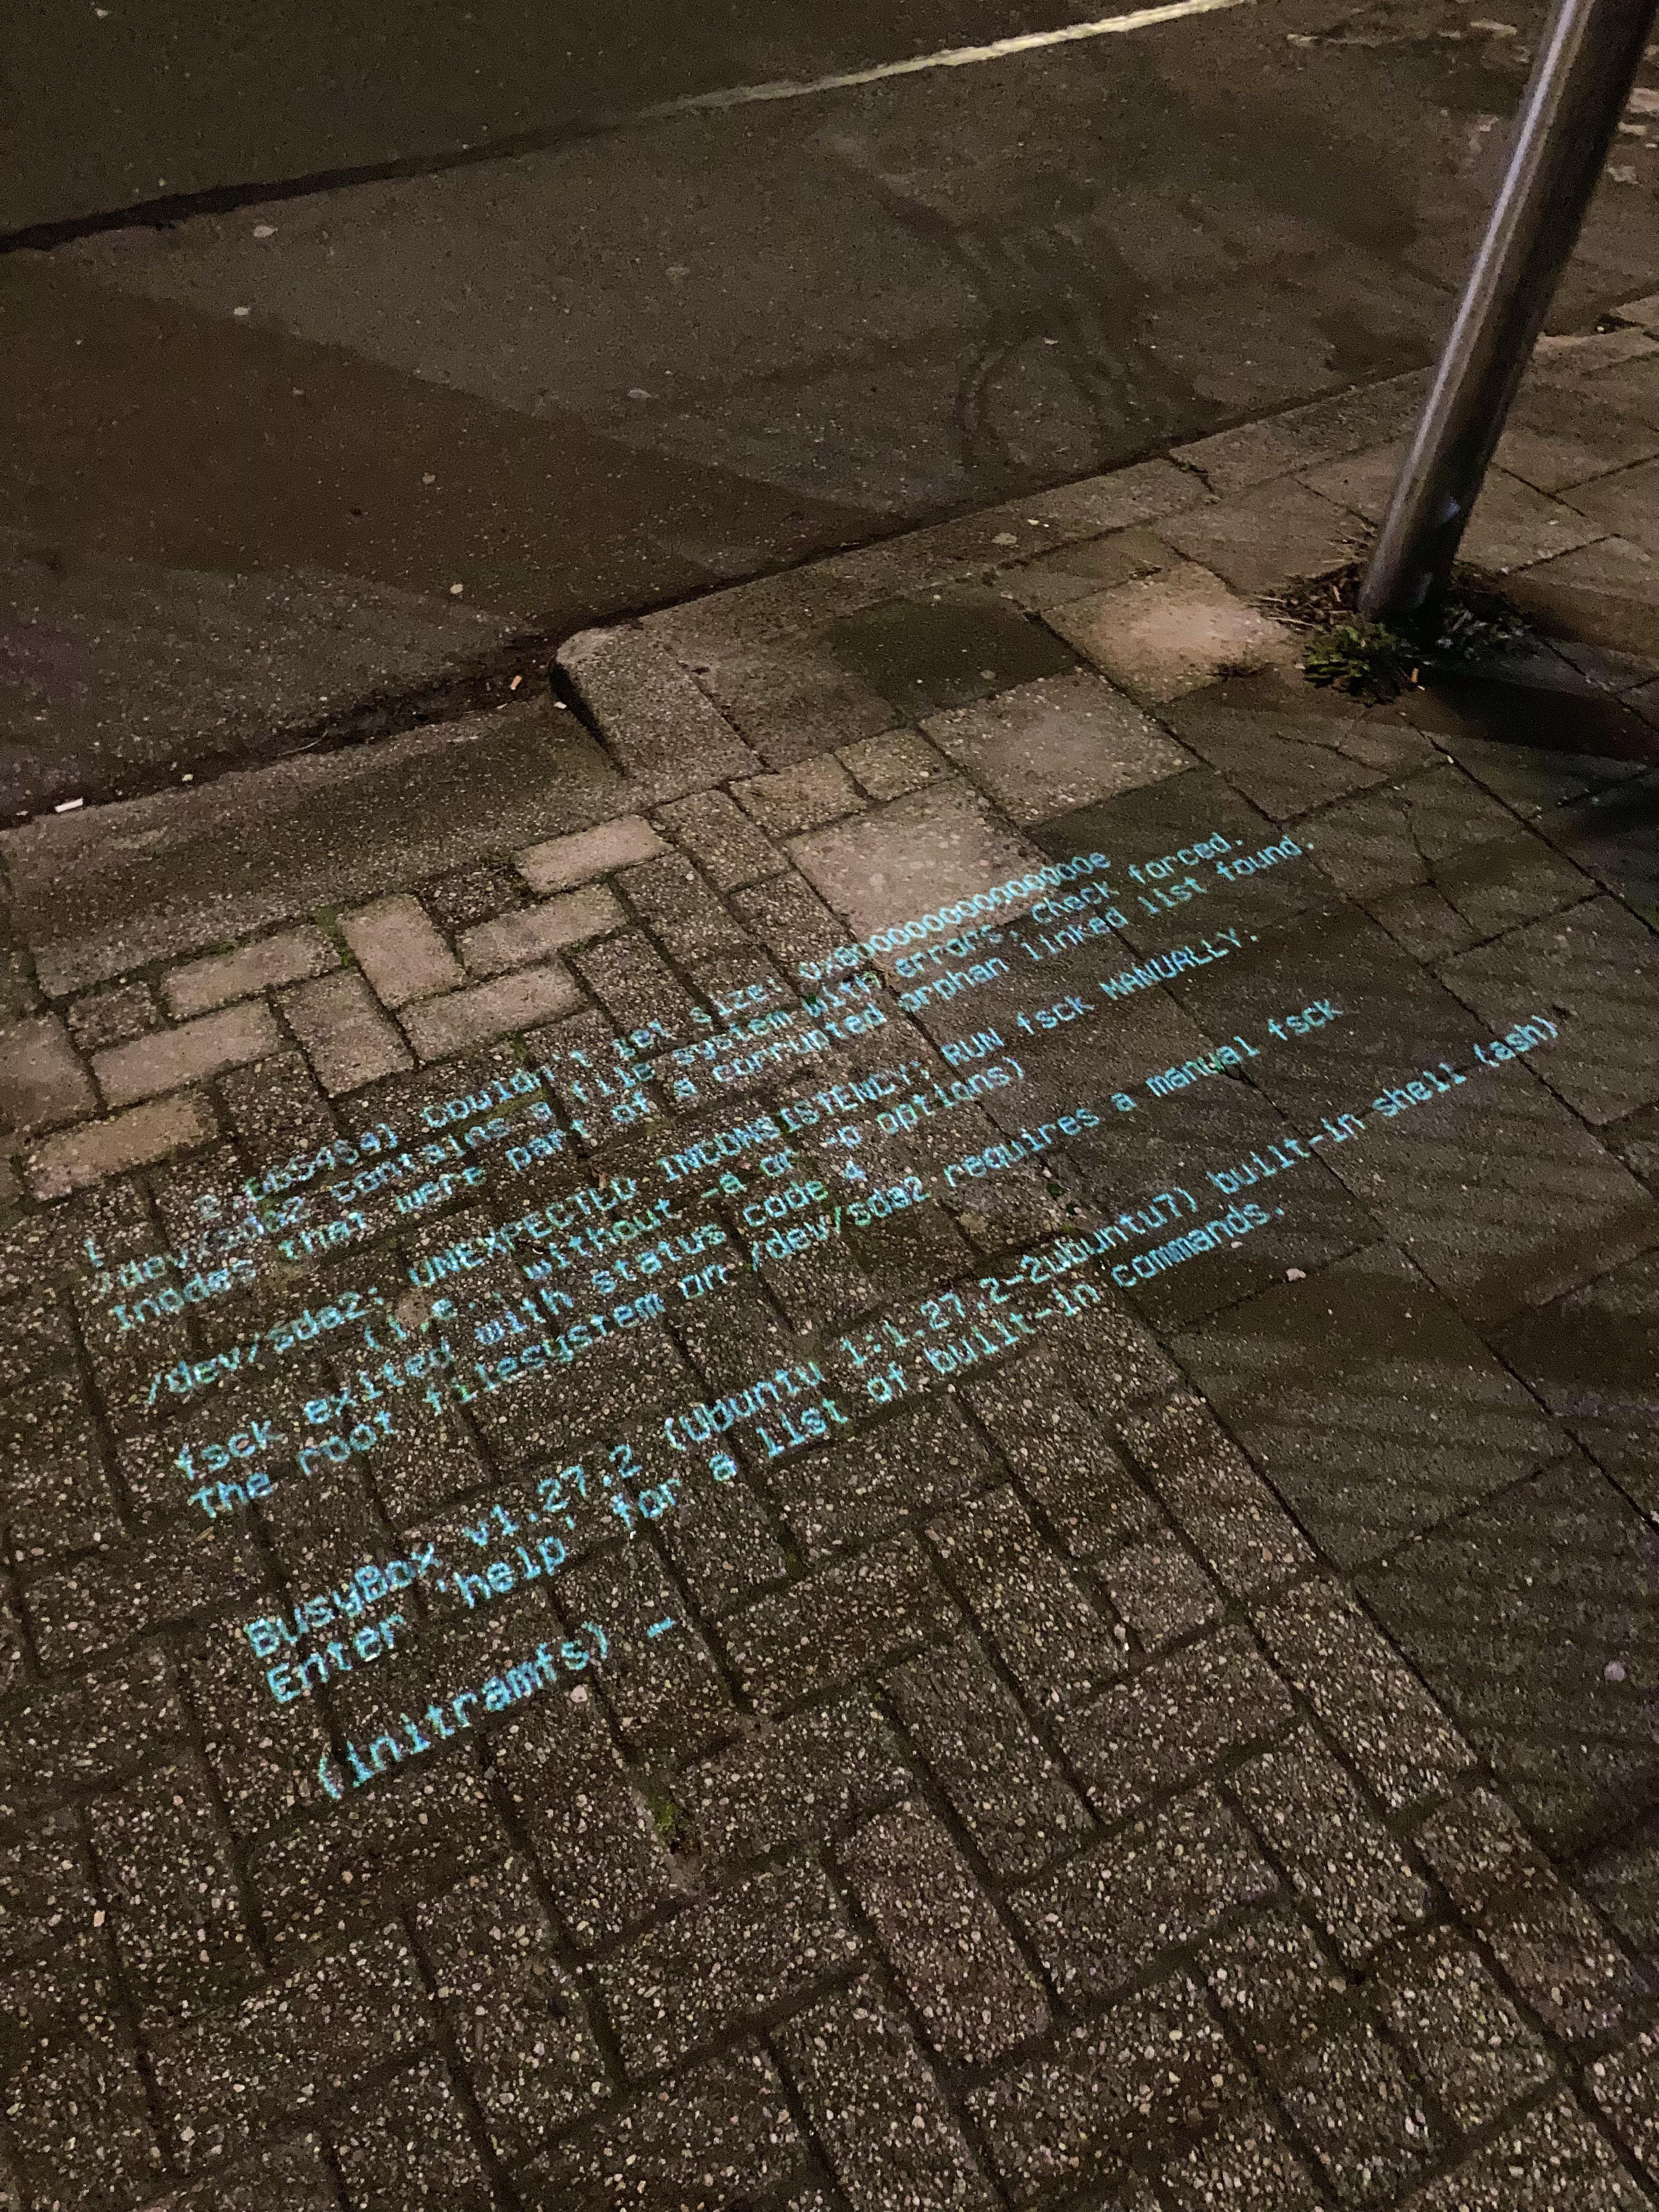 [    2.465454] Couldn't get size: 0x800000000000000e
/dev/sda2 contains a file system with errors, check forced.
Inodes that were part of a corrupted orphan linked list found.
/dev/sda2: UNEXPECTED INCONSISTENCY; RUN fsck MANUALLY.
(i.e., without -a or -p options)
fsck exited with status code 4
The root filesystem on /dev/sda2 requires a manual fsck
BusyBox v1.27.2 (Ubuntu 1:1.27.2-2ubuntu7) built-in shell (ash)
Enter 'help' for a list of built-in commands.
(initramfs) _